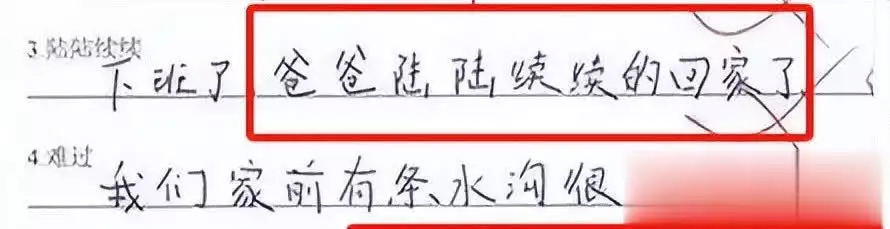 3.陆陆续续
下班了 爸爸陆陆续续的回家了
4.难过
我们家前有条水沟很